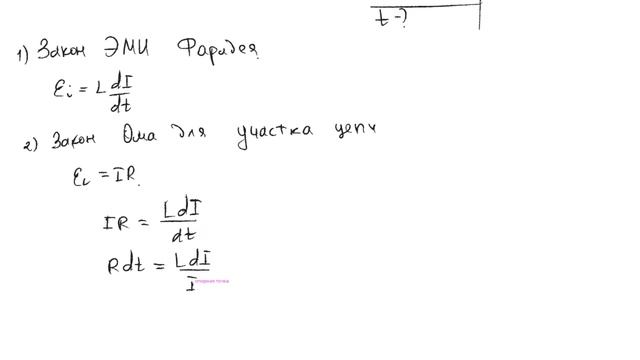 t-?
1) Закон ЭМИ Фарадея
Ei = L dI/dt
2) Закон Ома для участка цепи
Ei = IR.
IR = LdI/dt
Rdt = LdI/I
опорная точка